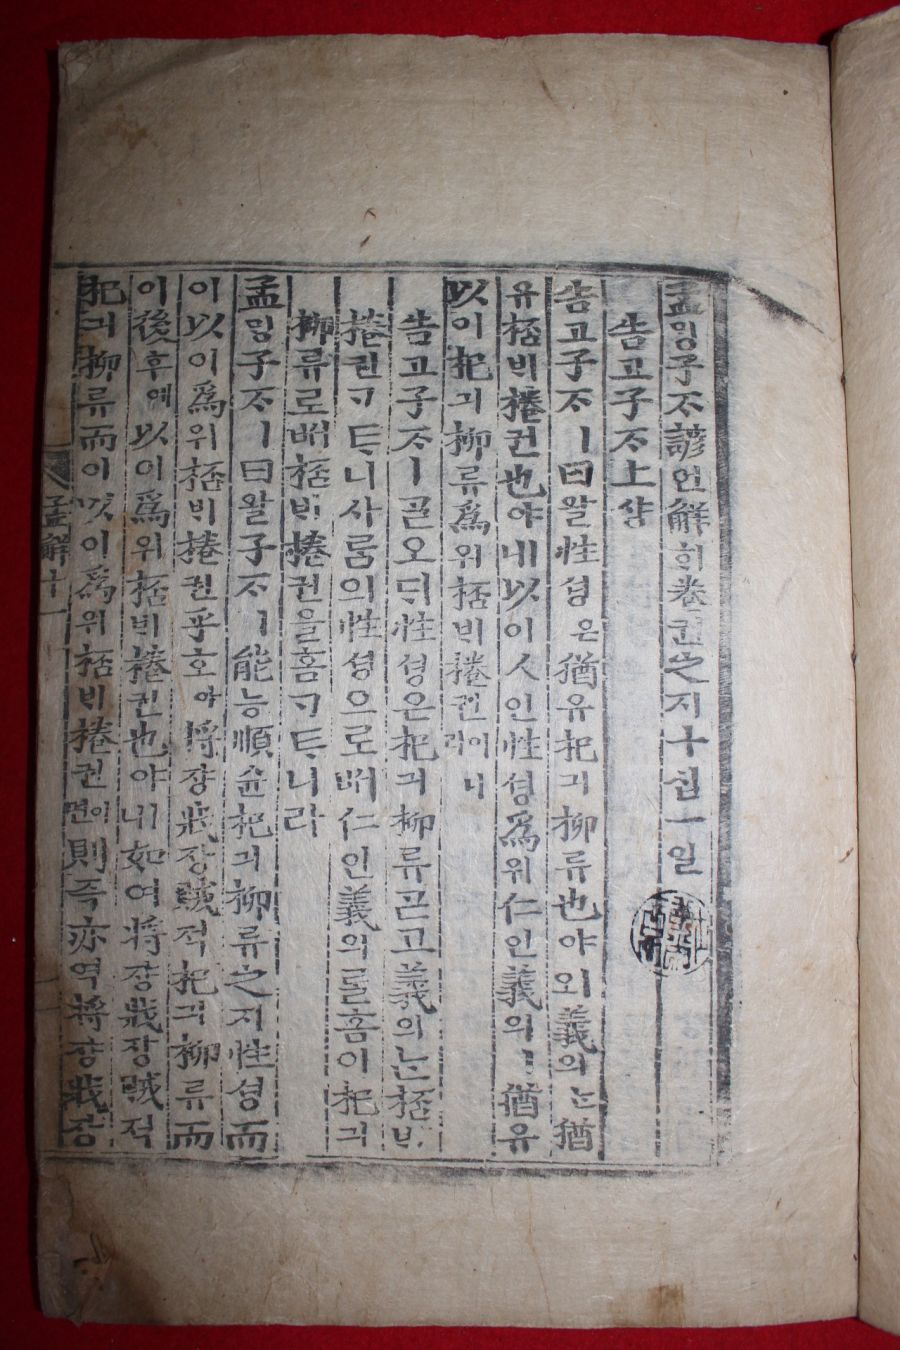 孟밍子ᄌᆞ諺언解ᄒᆡ卷권之지十십一일
告고子ᄌᆞ上샹
告고子ᄌᆞㅣ曰왈性셩은猶유杞긔柳류也야ㅣ오義의ᄂᆞᆫ猶
유桮ᄇᆡ棬권也야ㅣ니以이人인性셩爲위仁인義의ㅣ猶유
以이杞긔柳류爲위桮ᄇᆡ棬권이니라
告고子ᄌᆞㅣᄀᆞᆯ오ᄃᆡ性셩은杞긔柳류ᄀᆞᆮ고義의ᄂᆞᆫ桮ᄇᆡ
棬권ᄀᆞᄐᆞ니사ᄅᆞᆷ의性셩으로ᄡᅥ仁인義의ᄅᆞᆯ홈이杞긔
柳류로ᄡᅥ桮ᄇᆡ棬권을홈ᄀᆞᄐᆞ니라
孟밍子ᄌᆞㅣ曰왈子ᄌᆞㅣ能능順슌杞긔柳류之지性셩而
이以이爲위桮ᄇᆡ棬권乎호아將쟝戕장賊적杞긔柳류而
이後후에以이爲위桮ᄇᆡ棬권也야ㅣ니如여將쟝戕장賊적
杞긔柳류而이以이爲위桮ᄇᆡ棬권이면則즉亦역將쟝戕장
孟解十一